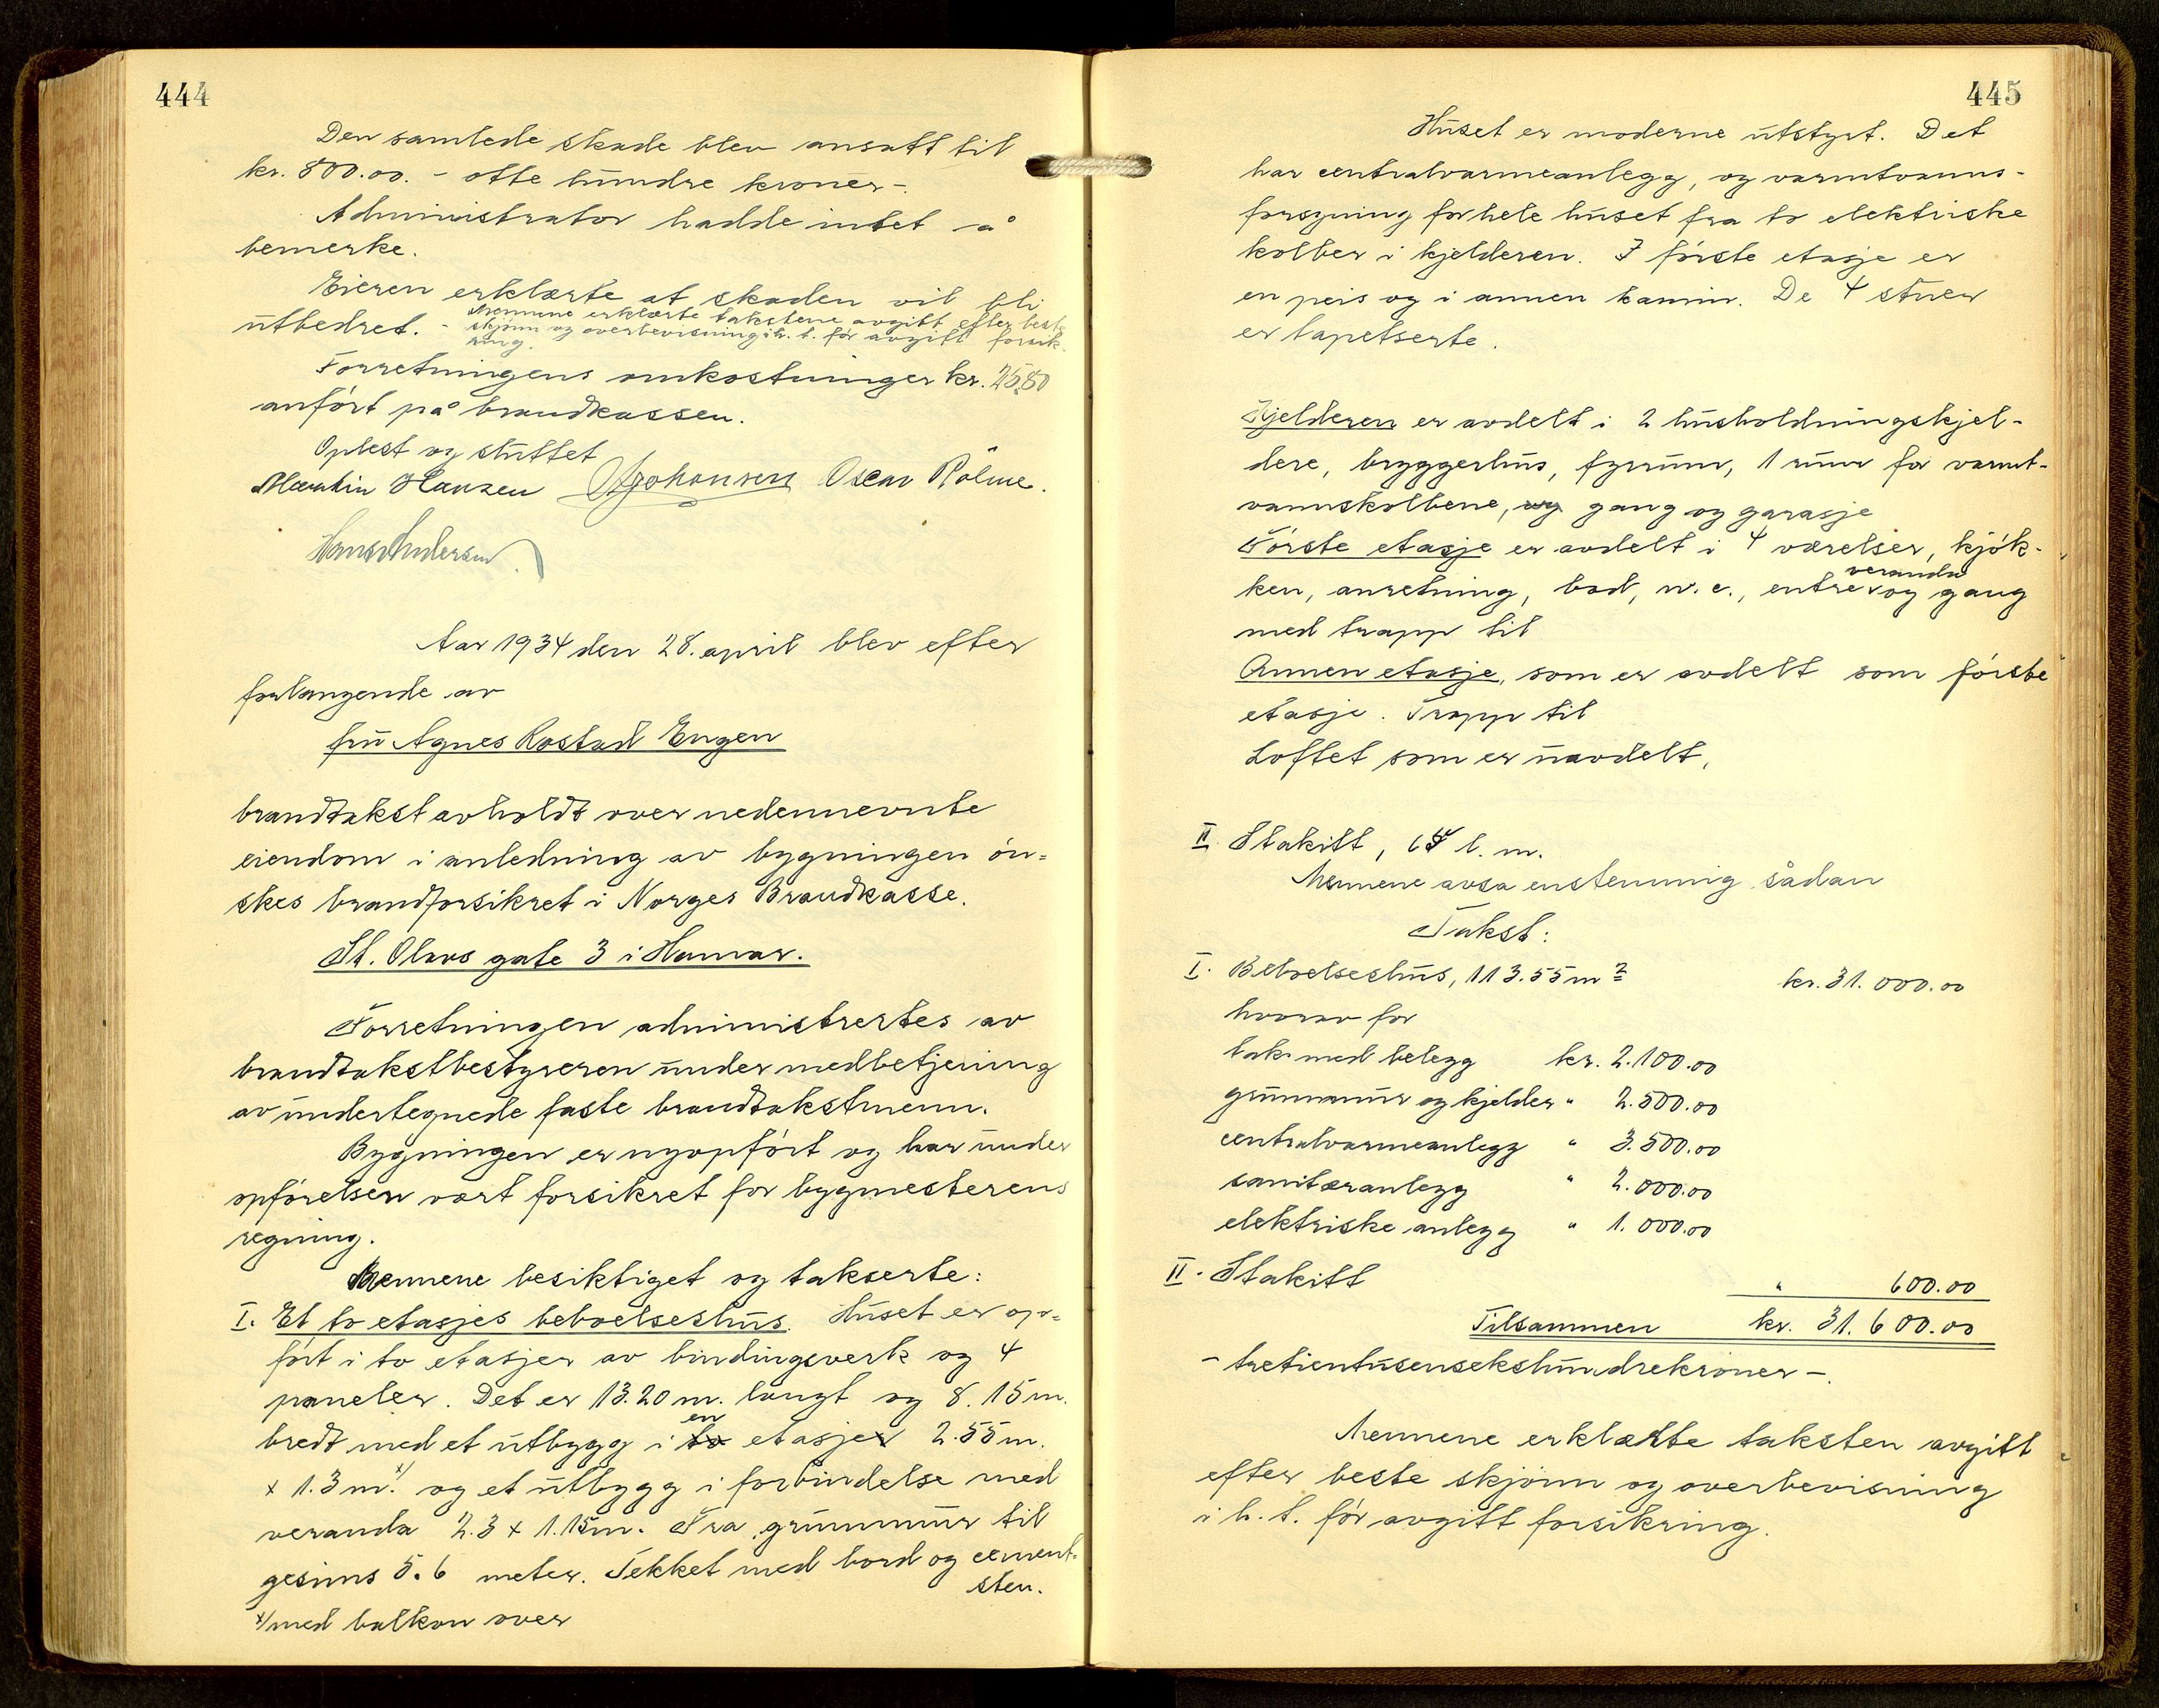 444
Den samlede skade blev ansatt til
kr. 800.00. - otte hundre kroner -.
Administrator hadde intet å
bemerke.
Eieren erklærte at skaden vil bli
utbedret. - Mennene erklærte takstene avgitt efter beste
skjønn og overbevisning i h. t. før avgitt forsik-
ring.
Forretningens omkostninger kr. 25.80
anført på brandkassen.
Oplest og sluttet
Martin Hansen Johansen Oscar Rölme.
Hans Andersen
Aar 1934 den 28. april blev efter
forlangende av
fru Agnes Rostad Engen
brandtakst avholdt over nedennevnte
eiendom i anledning av bygningen øn-
skes brandforsikret i Norges Brandkasse.
St. Olavs gate 3 i Hamar.
Forretningen administrertes av
brandtakstbestyreren under medbetjening
av undertegnede faste brandtakstmenn.
Bygningen er nyopført og har under
opførelsen vært forsikret for bygmesterens
regning.
Mennene besiktiget og takserte:
I. Et to etasjes beboelseshus. Huset er op-
ført i to etasjer av bindingsverk og 4
paneler. Det er 13.20 m. langt og 8.15 m.
bredt med et utbygg i en etasje 2.55 m.
x 1.3 m. x/ og et utbygg i forbindelse med
veranda 2.3 x 1.15m. Fra grunnmur til
gesims 5.6 meter. Tekket med bord og cement-
sten.
x/ med balkon over
445
Huset er moderne utstyrt. Det
har centralvarmeanlegg, og varmtvanns-
forsyning for hele huset fra to elektriske
kolber i kjelderen. I første etasje er
en peis og i annen kamin. De 4 stuer
er tapetserte.
Kjelderen er avdelt i 2 husholdningskjel-
dere, bryggerhus, fyrrum, 1 rum for varmt-
vannskolbene, og gang og garasje
Første etasje er avdelt i 4 værelser, kjøk-
ken, anretning, bad, w.c., entre veranda og gang
med trapp til
Annen etasje, som er avdelt som første
etasje. Trapp til
Loftet som er uavdelt.
II Stakitt, l. m.
Mennene avsa enstemmig sådan
Takst:
I. Beboelseshus, 113.55 m2 kr. 31.000.00
hvorav for
tak med belegg kr. 2.100.00
grunnmur og kjelder " 2.500.00
centralvarmeanlegg " 3.500.00
sanitæranlegg " 2.000.00
elektriske anlegg " 1.000.00
II. Stakitt " 600.00
Tilsammen kr. 31.600.00
- trettientusensekshundrekroner -.
Mennene erklærte taksten avgitt
efter beste skjønn og overbevisning
i h. t. før avgitt forsikring.